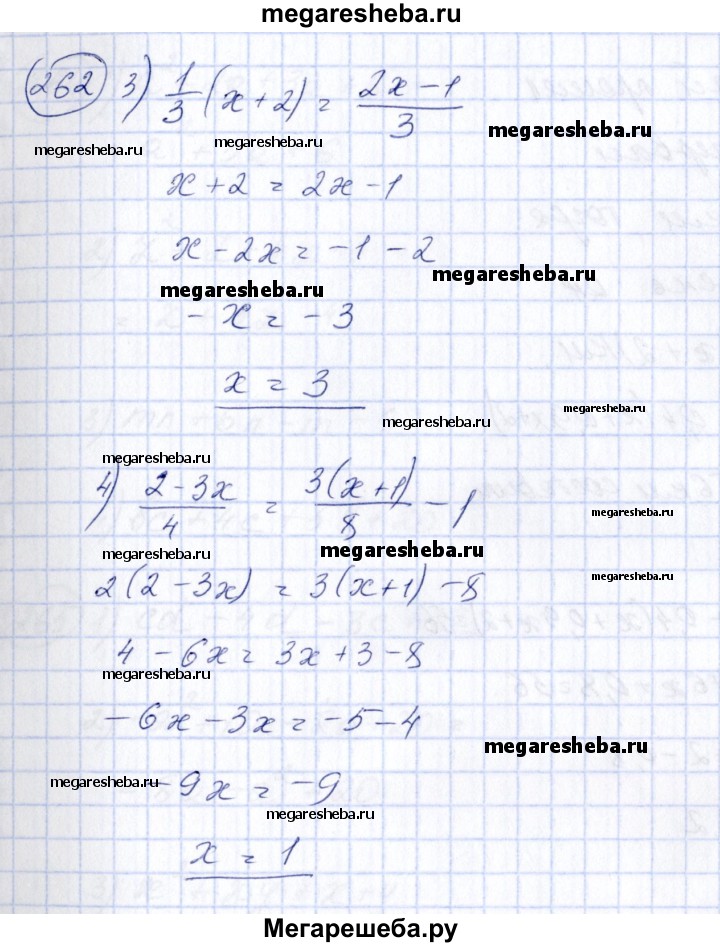 megaresheba.ru
262 3) 1/3 (x+2) = (2x-1)/3
megaresheba.ru megaresheba.ru megaresheba.ru
x+2 = 2x-1
x-2x = -1-2
megaresheba.ru megaresheba.ru
-x = -3
x = 3
megaresheba.ru megaresheba.ru
4) (2-3x)/4 = 3(x+1)/8 - 1
megaresheba.ru
megaresheba.ru megaresheba.ru
2(2-3x) = 3(x+1) - 8
megaresheba.ru
4-6x = 3x+3-8
megaresheba.ru
-6x-3x = -5-4
megaresheba.ru
megaresheba.ru -9x = -9
megaresheba.ru
x = 1
Мегарешеба.ру